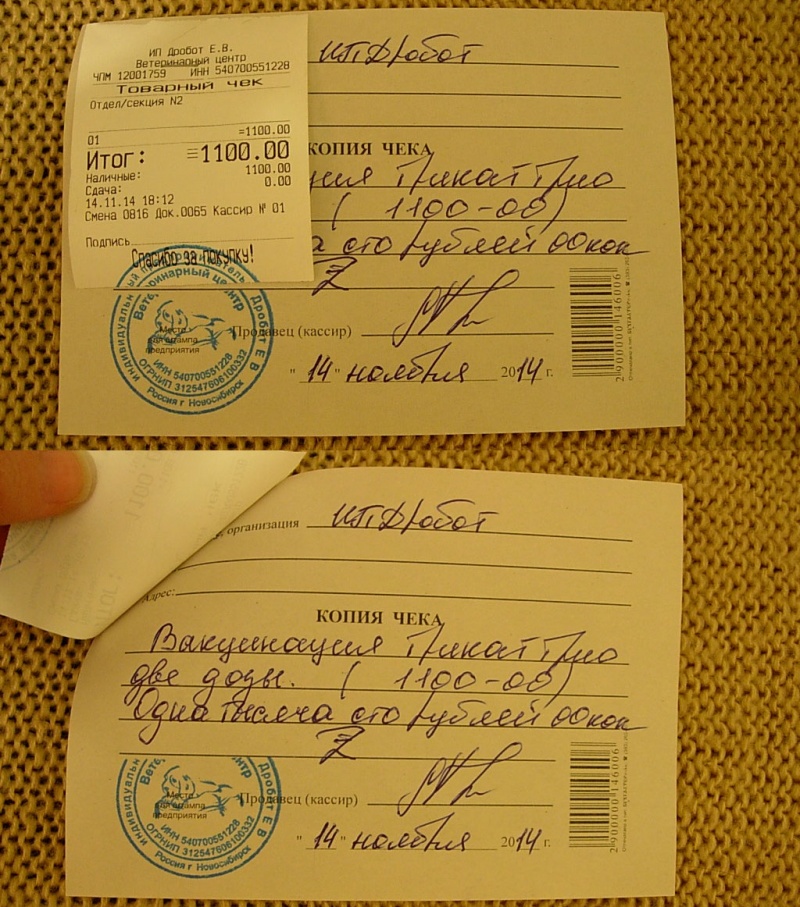 ИП Дробот Е.В.
Ветеринарный центр
ЧПМ 12001759 ИНН 540700551228
Товарный чек
Отдел/секция N2
01 =1100.00
Итог: =1100.00
Наличные: 1100.00
Сдача: 0.00
14.11.14 18:12
Смена 0816 Док.0065 Кассир № 01
Подпись
Спасибо за покупку!
ИП Дробот
КОПИЯ ЧЕКА
ция Трикат Трио
( 1100-00)
а сто рублей 00 коп
Z
Продавец (кассир)
" 14 " ноября 2014 г.
Индивидуальный предприниматель Дробот Е В
Ветеринарный центр
Место
для штампа
предприятия
ИНН 540700551228
ОГРНИП 312547606100332
Россия г Новосибирск
2900000146006
организация ИП Дробот
Адрес:
КОПИЯ ЧЕКА
Вакцинация Трикат Трио
две дозы. ( 1100-00)
Одна тысяча сто рублей 00 коп
Z
Продавец (кассир)
" 14 " ноября 2014 г.
Индивидуальн Дробот Е В
Вете нтр
Место
для штампа
предприятия
ИНН 540700551228
ОГРНИП 312547606100332
Россия г Новосибирск
2900000146006